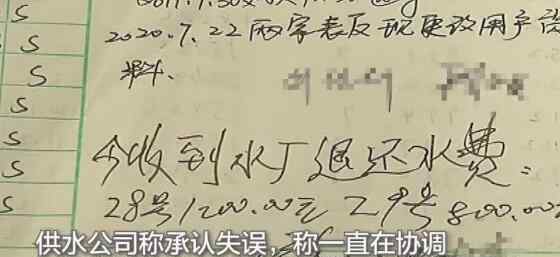 S
2020.7.22两字表反现更改用户资
S
料.
S
S
今收到水厂退还水费:
S
28号1200.00元 29号800.00
S
供水公司称承认失误，称一直在协调